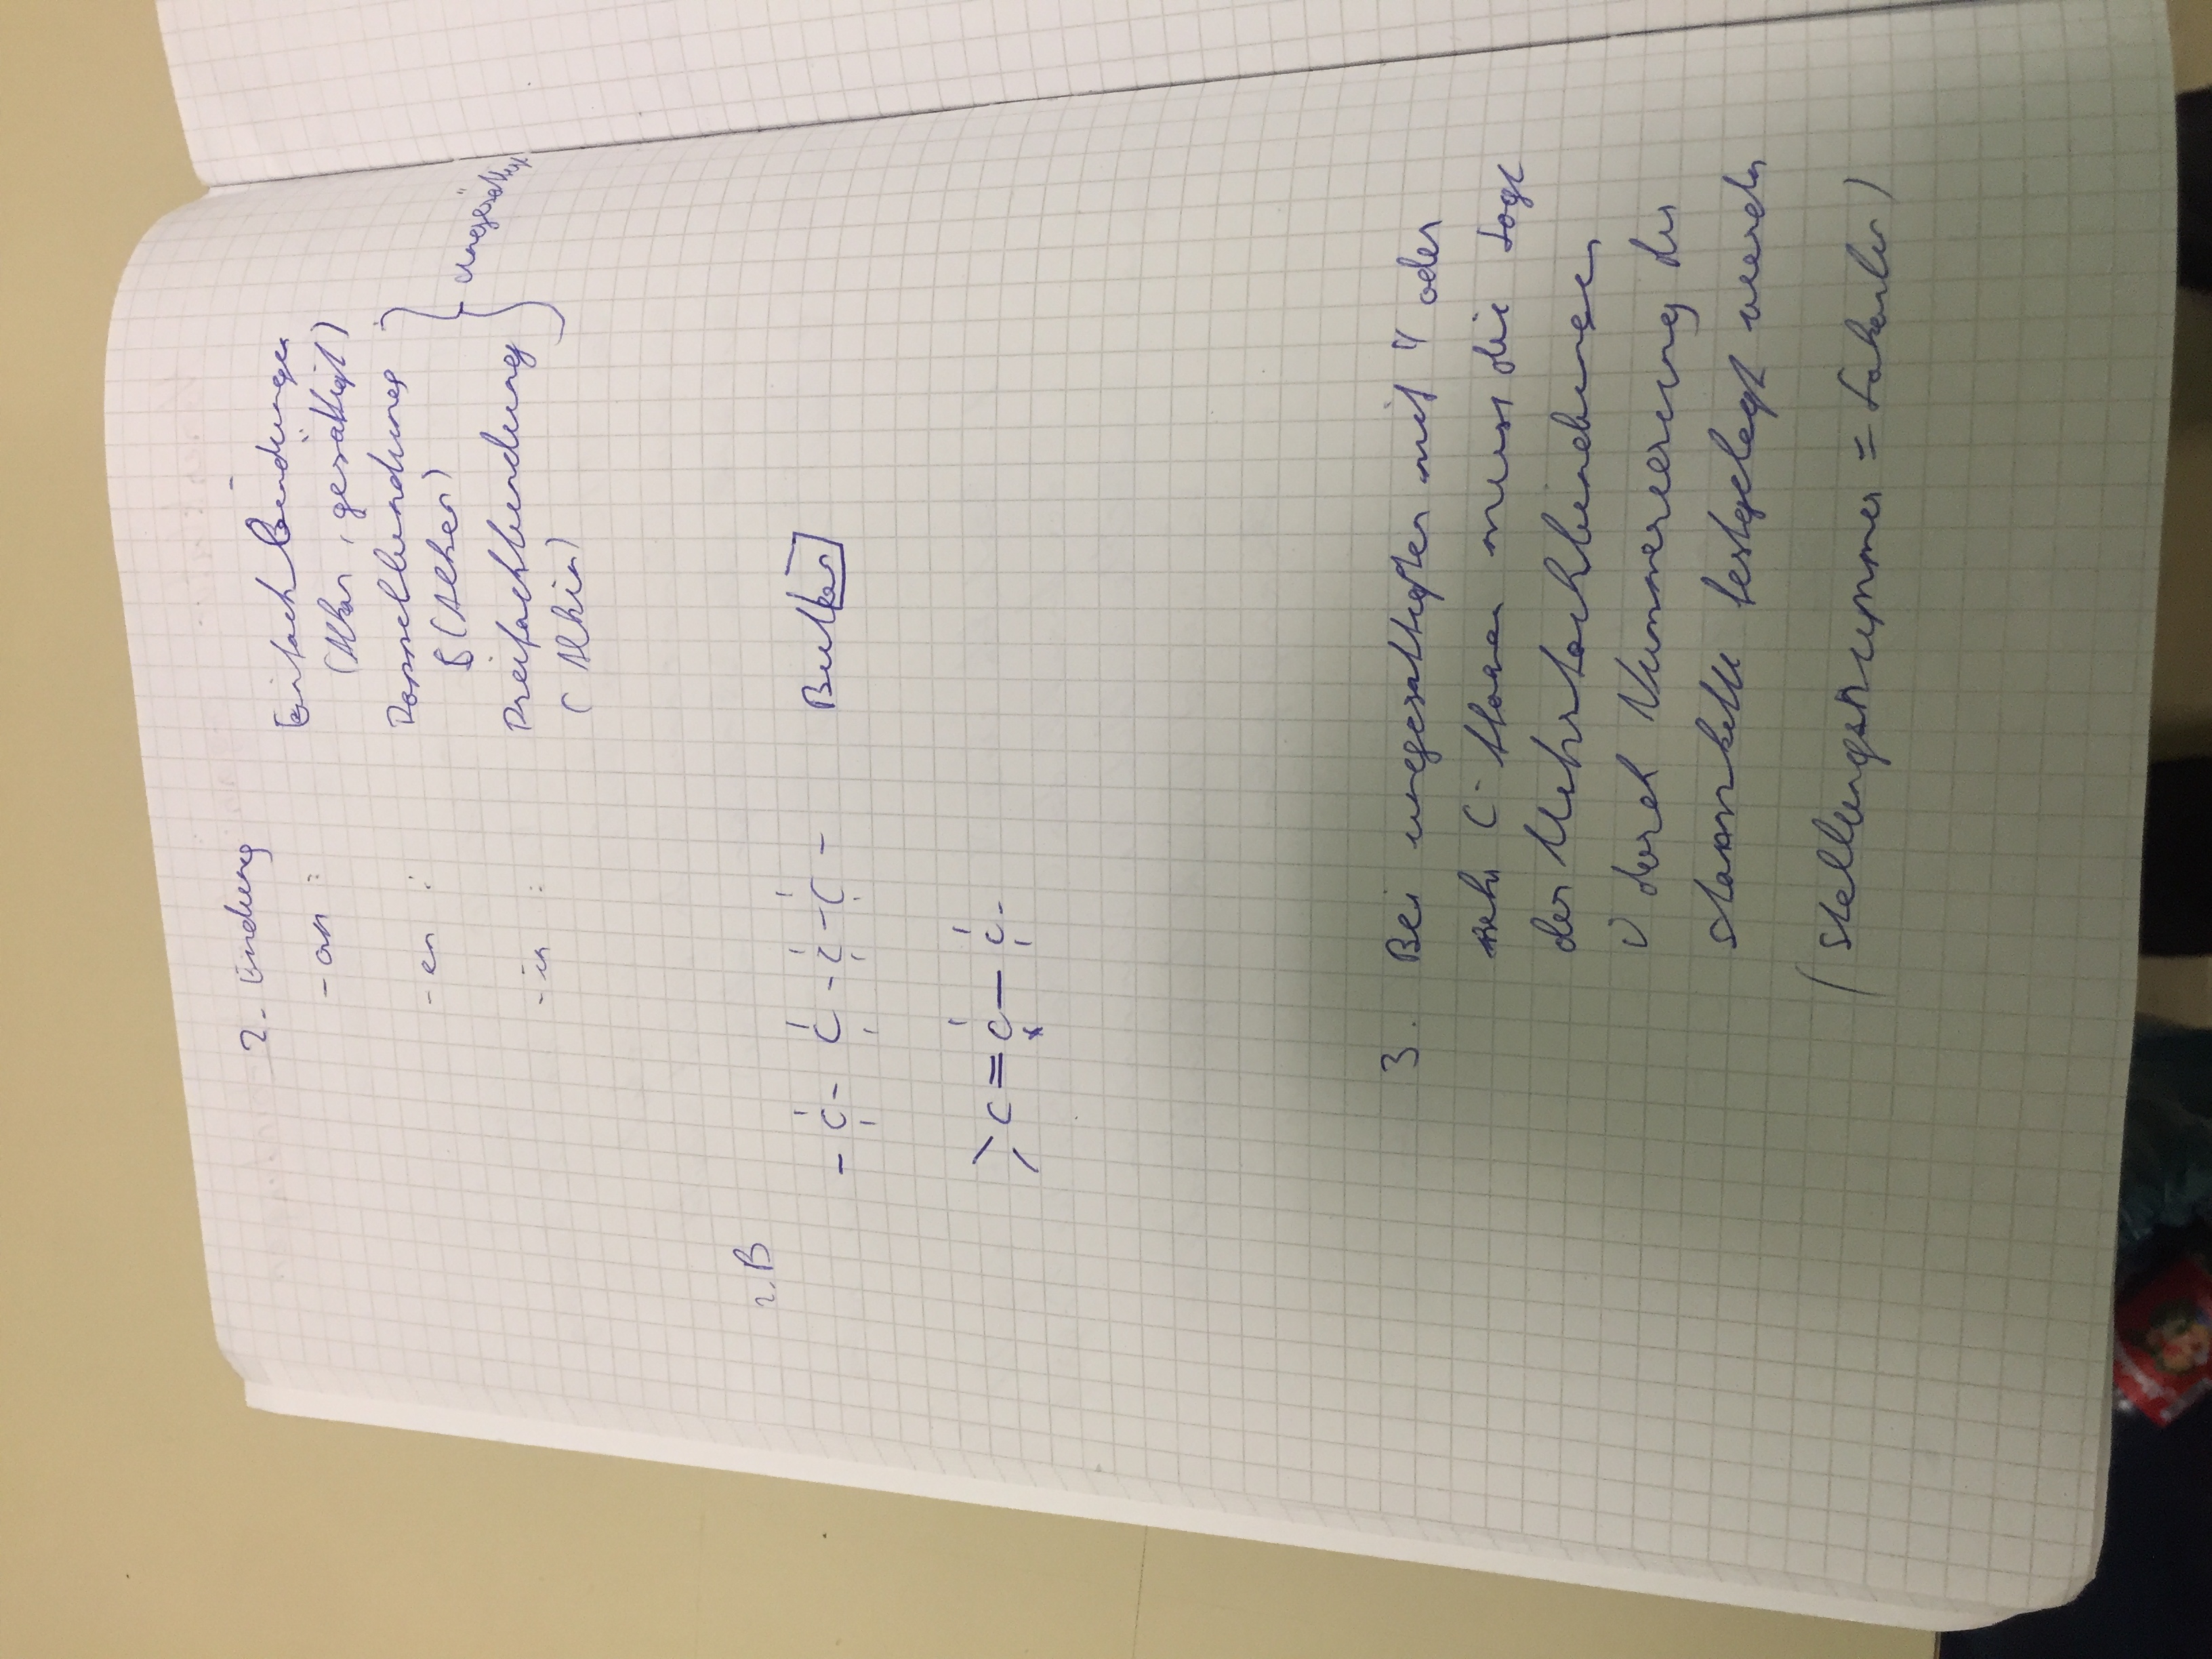 2. Endung
-an : Einfachbindungen
(Alkan, gesättigt)
-en : Doppelbindung
(Alken)
ungesättigt
-in : Dreifachbindung
(Alkin)
z.B
- C - C - C - C - Butan
C = C - C -
3. Bei ungesattigten mit 4 oder
mehr C-Atomen muss die Lage
der Mehrfachbindungen
durch Nummerierung der
Stammkette festgelegt werden
(Stellungsnummer = Lokanten)